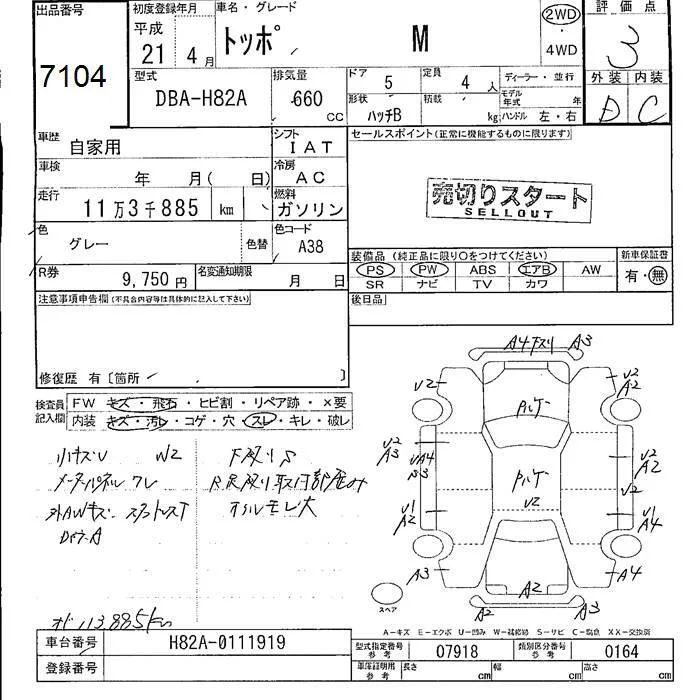 出品番号
7104
初度登録年月
平成
21年 4月
車名・グレード
トッポ M
2WD
・
4WD
評価点
3
型式
DBA-H82A
排気量
660 CC
ドア 5
定員 4 人
ディーラー・並行
形状 ハッチB
積載 kg
モデル年式 年
ハンドル 左・右
外装 内装
D C
車歴
自家用
シフト
IAT
セールスポイント(正常に機能するものに限ります)
車検
年 月( 日)
冷房
AC
走行
11万3千885 km
燃料
ガソリン
売切りスタート
SELLOUT
色
グレー 色替
色コード
A38
装備品(純正品に限り〇をつけてください)
新車保証書
PS PW ABS エアB AW
SR ナビ TV カワ
有・無
R券
9,750円
名変通知期限
月 日
後日品
注意事項申告欄(不具合内容等は具体的に記入して下さい)
修復歴 有〔箇所 〕
検査員記入欄
FW キズ・飛石・ヒビ割・リペア跡・×要
内装 キズ・汚レ・コゲ・穴・スレ・キレ・破レ
小キズU W2
メーターパネル ワレ
下廻りS
オイルモレ大
113885km
A3
U2
U2
A2
U2
A3
UA4
B3
U2
A2
U2
U2
U1
A2
U1
A4
A3
A4
A2
A2
A3
スペア
A-キズ E-エクボ U-凹み W-補修跡 S-サビ C-腐食 XX-交換済
車台番号
H82A-0111919
登録番号
型式指定番号
参考
07918
類別区分番号
参考
0164
車庫証明用
参考
長さ cm
幅 cm
高さ cm